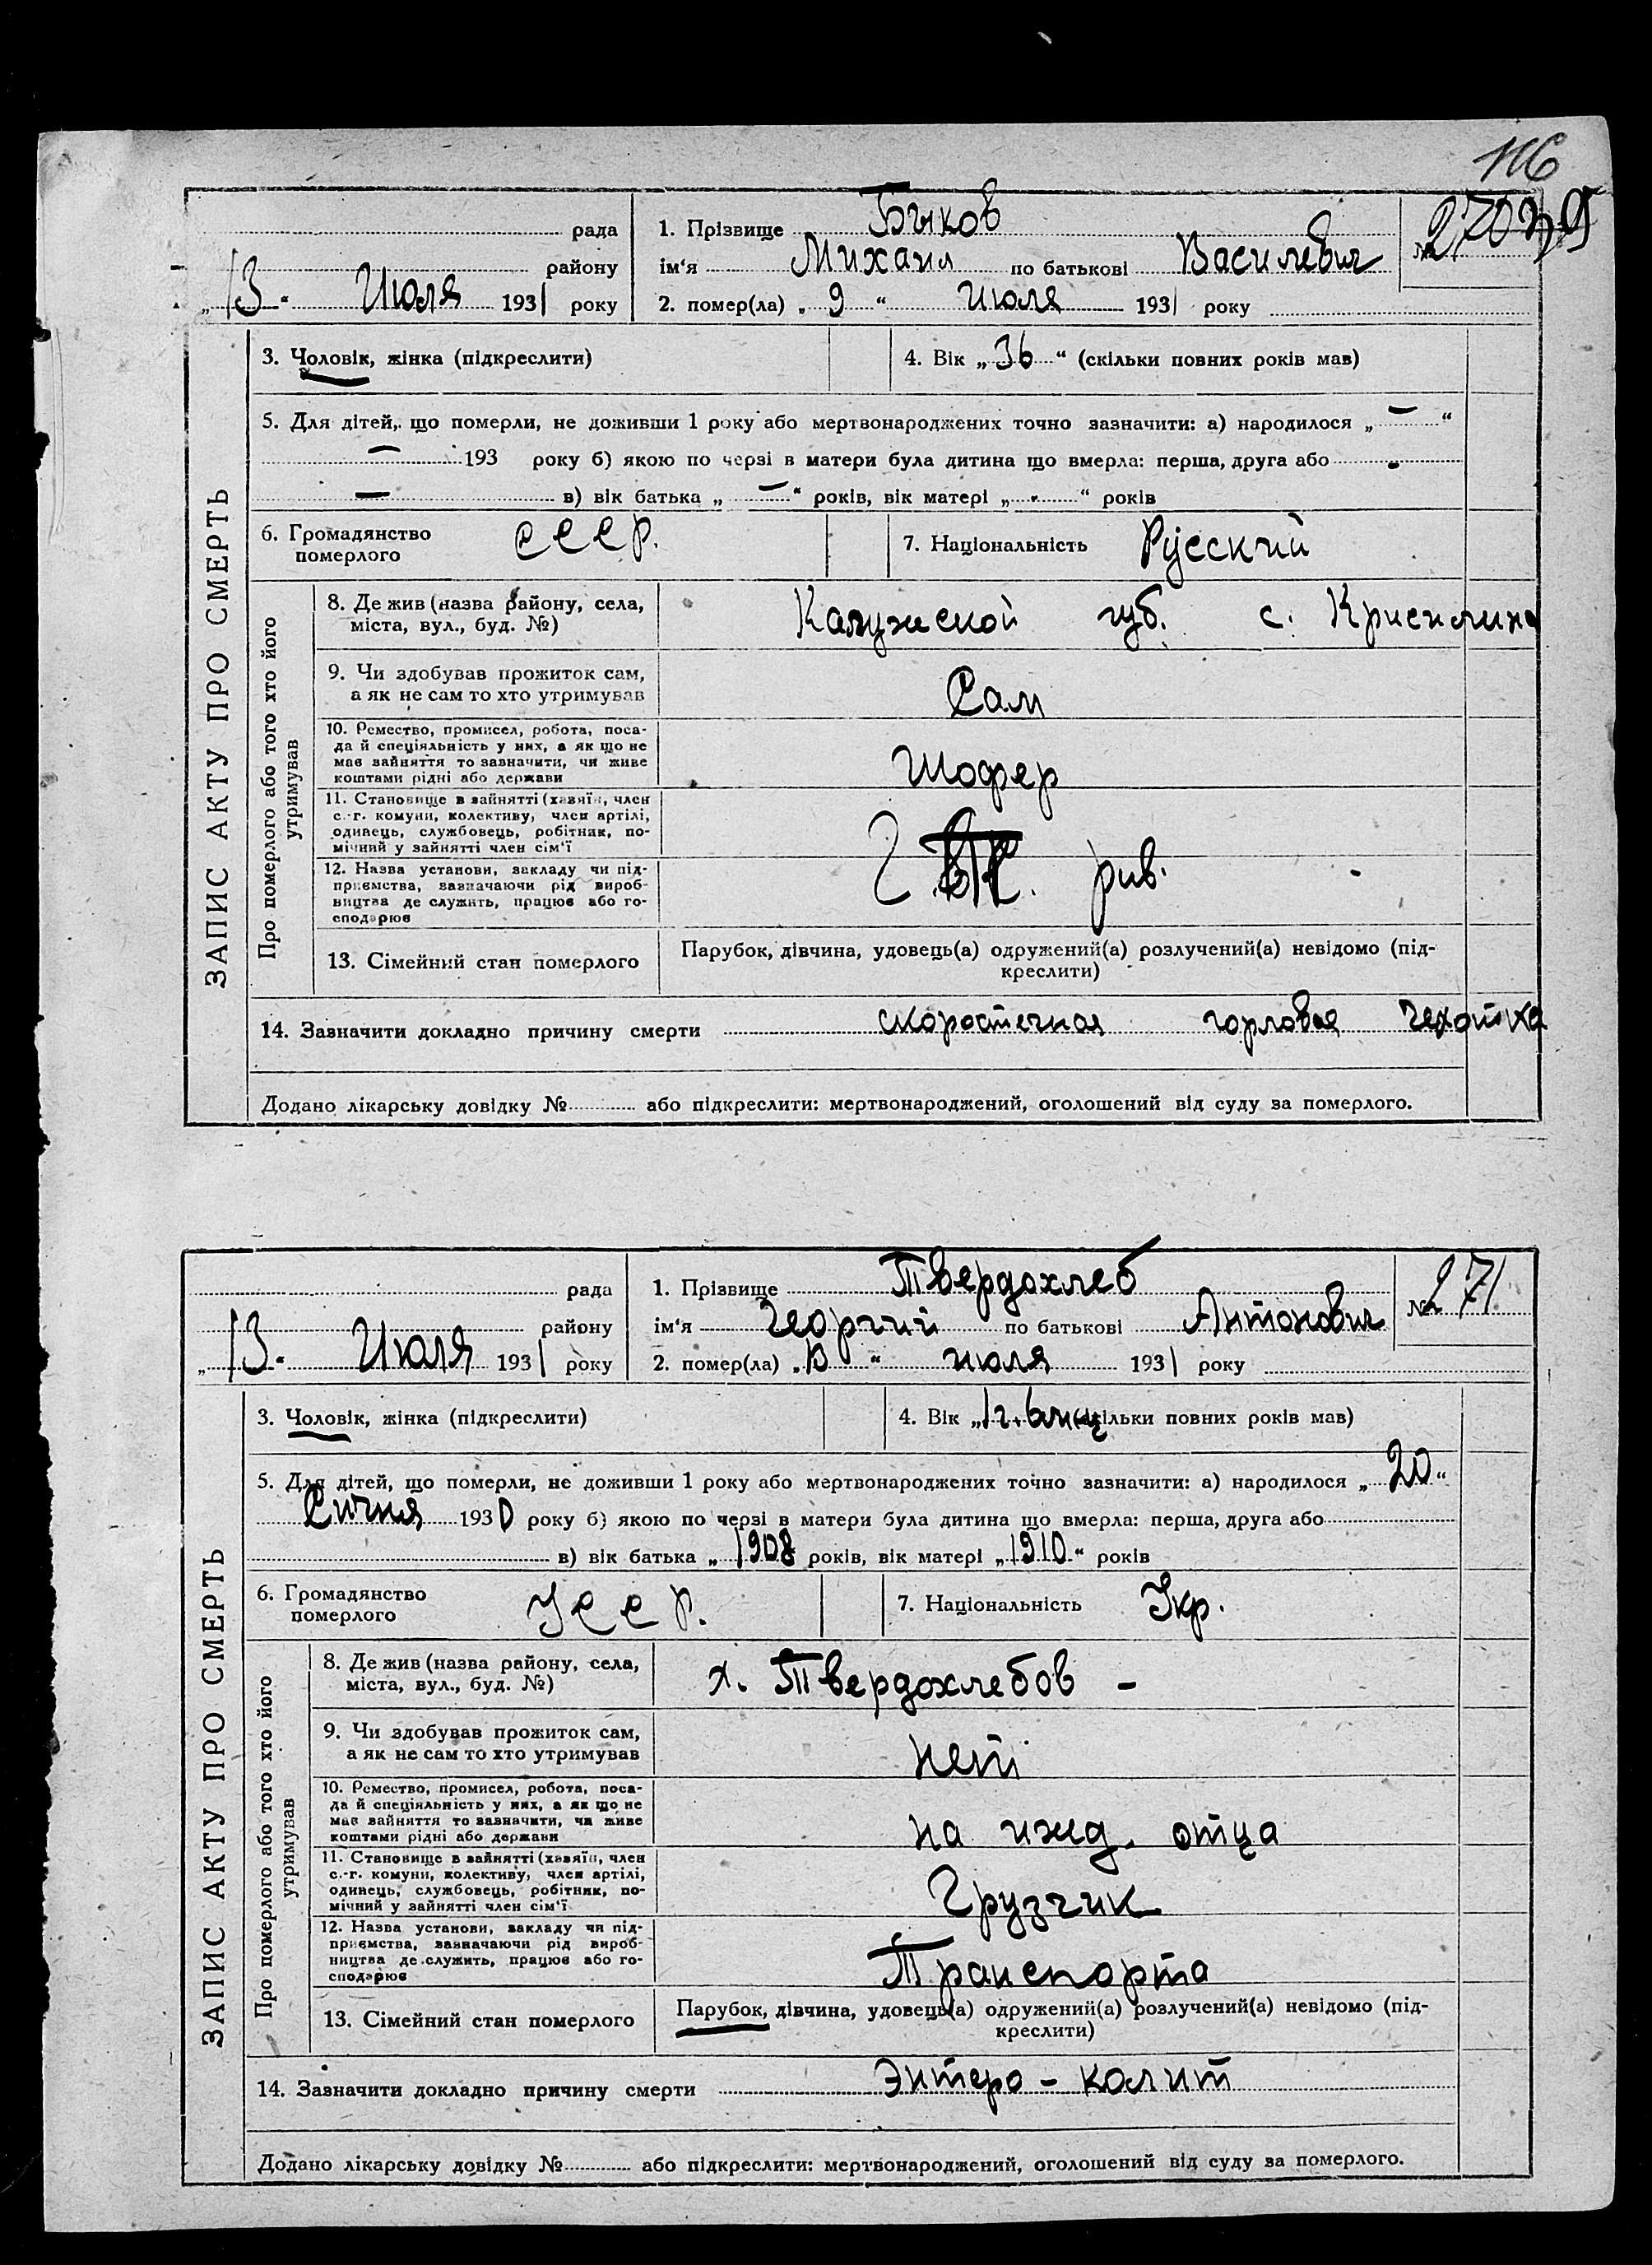 116
рада
1. Прізвище Быков
№ 270
району
ім‘я Михаил по батькові Василевич
„13“ Июля 1931 року
2. помер(ла) „9“ июля 1931 року
ЗАПИС АКТУ ПРО СМЕРТЬ
3. Чоловік, жінка (підкреслити)
4. Вік „36“ (скільки повних років мав)
5. Для дітей, що померли, не доживши 1 року або мертвонароджених точно зазначити: а) народилося „—“
— 193 року б) якою по черзі в матери була дитина що вмерла: перша, друга або -
— в) вік батька „—“ років, вік матері „-“ років
6. Громадянство
померлого
СССР.
7. Національність Русский
Про померлого або того хто його
утримував
8. Де жив (назва району, села,
міста, вул., буд. №)
Калужской губ. с.
9. Чи здобував прожиток сам,
а як не сам то хто утримував
Сам
10. Ремество, промисел, робота, поса-
да й спеціяльність у них, а як що не
має зайняття то зазначити, чи живе
коштами рідні або держави
Шофер
11. Становище в зайнятті (хазяїн, член
с.-г. комуни, колективу, член артілі,
одинець, службовець, робітник, по-
мічний у зайнятті член сім‘ї
12. Назва установи, закладу чи під-
приємства, зазначаючи рід вироб-
ництва де служить, працює або го-
сподарює
13. Сімейний стан померлого
Парубок, дівчина, удовець(а) одружений(а) розлучений(а) невідомо (під-
креслити)
14. Зазначити докладно причину смерти скоротечная горловая чехотка
Додано лікарську довідку № або підкреслити: мертвонароджений, оголошений від суду за померлого.
рада
1. Прізвище Твердохлеб
№ 271
району
ім‘я Георгий по батькові Антонович
„13“ Июля 1931 року
2. помер(ла) „ “ июля 1931 року
ЗАПИС АКТУ ПРО СМЕРТЬ
3. Чоловік, жінка (підкреслити)
4. Вік „1г. 6 мц (скільки повних років мав)
5. Для дітей, що померли, не доживши 1 року або мертвонароджених точно зазначити: а) народилося „20“
Січня 1930 року б) якою по черзі в матери була дитина що вмерла: перша, друга або
в) вік батька „1908 років, вік матері „1910“ років
6. Громадянство
померлого
УССР.
7. Національність Укр.
Про померлого або того хто його
утримував
8. Де жив (назва району, села,
міста, вул., буд. №)
х. Твердохлебов -
9. Чи здобував прожиток сам,
а як не сам то хто утримував
нет
10. Ремество, промисел, робота, поса-
да й спеціяльність у них, а як що не
має зайняття то зазначити, чи живе
коштами рідні або держави
на ижд. отца
11. Становище в зайнятті (хазяїн, член
с.-г. комуни, колективу, член артілі,
одинець, службовець, робітник, по-
мічний у зайнятті член сім‘ї
Грузчик
12. Назва установи, закладу чи під-
приємства, зазначаючи рід вироб-
ництва де служить, працює або го-
сподарює
Транспорта
13. Сімейний стан померлого
Парубок, дівчина, удовець(а) одружений(а) розлучений(а) невідомо (під-
креслити)
14. Зазначити докладно причину смерти Энтеро - колит
Додано лікарську довідку № або підкреслити: мертвонароджений, оголошений від суду за померлого.